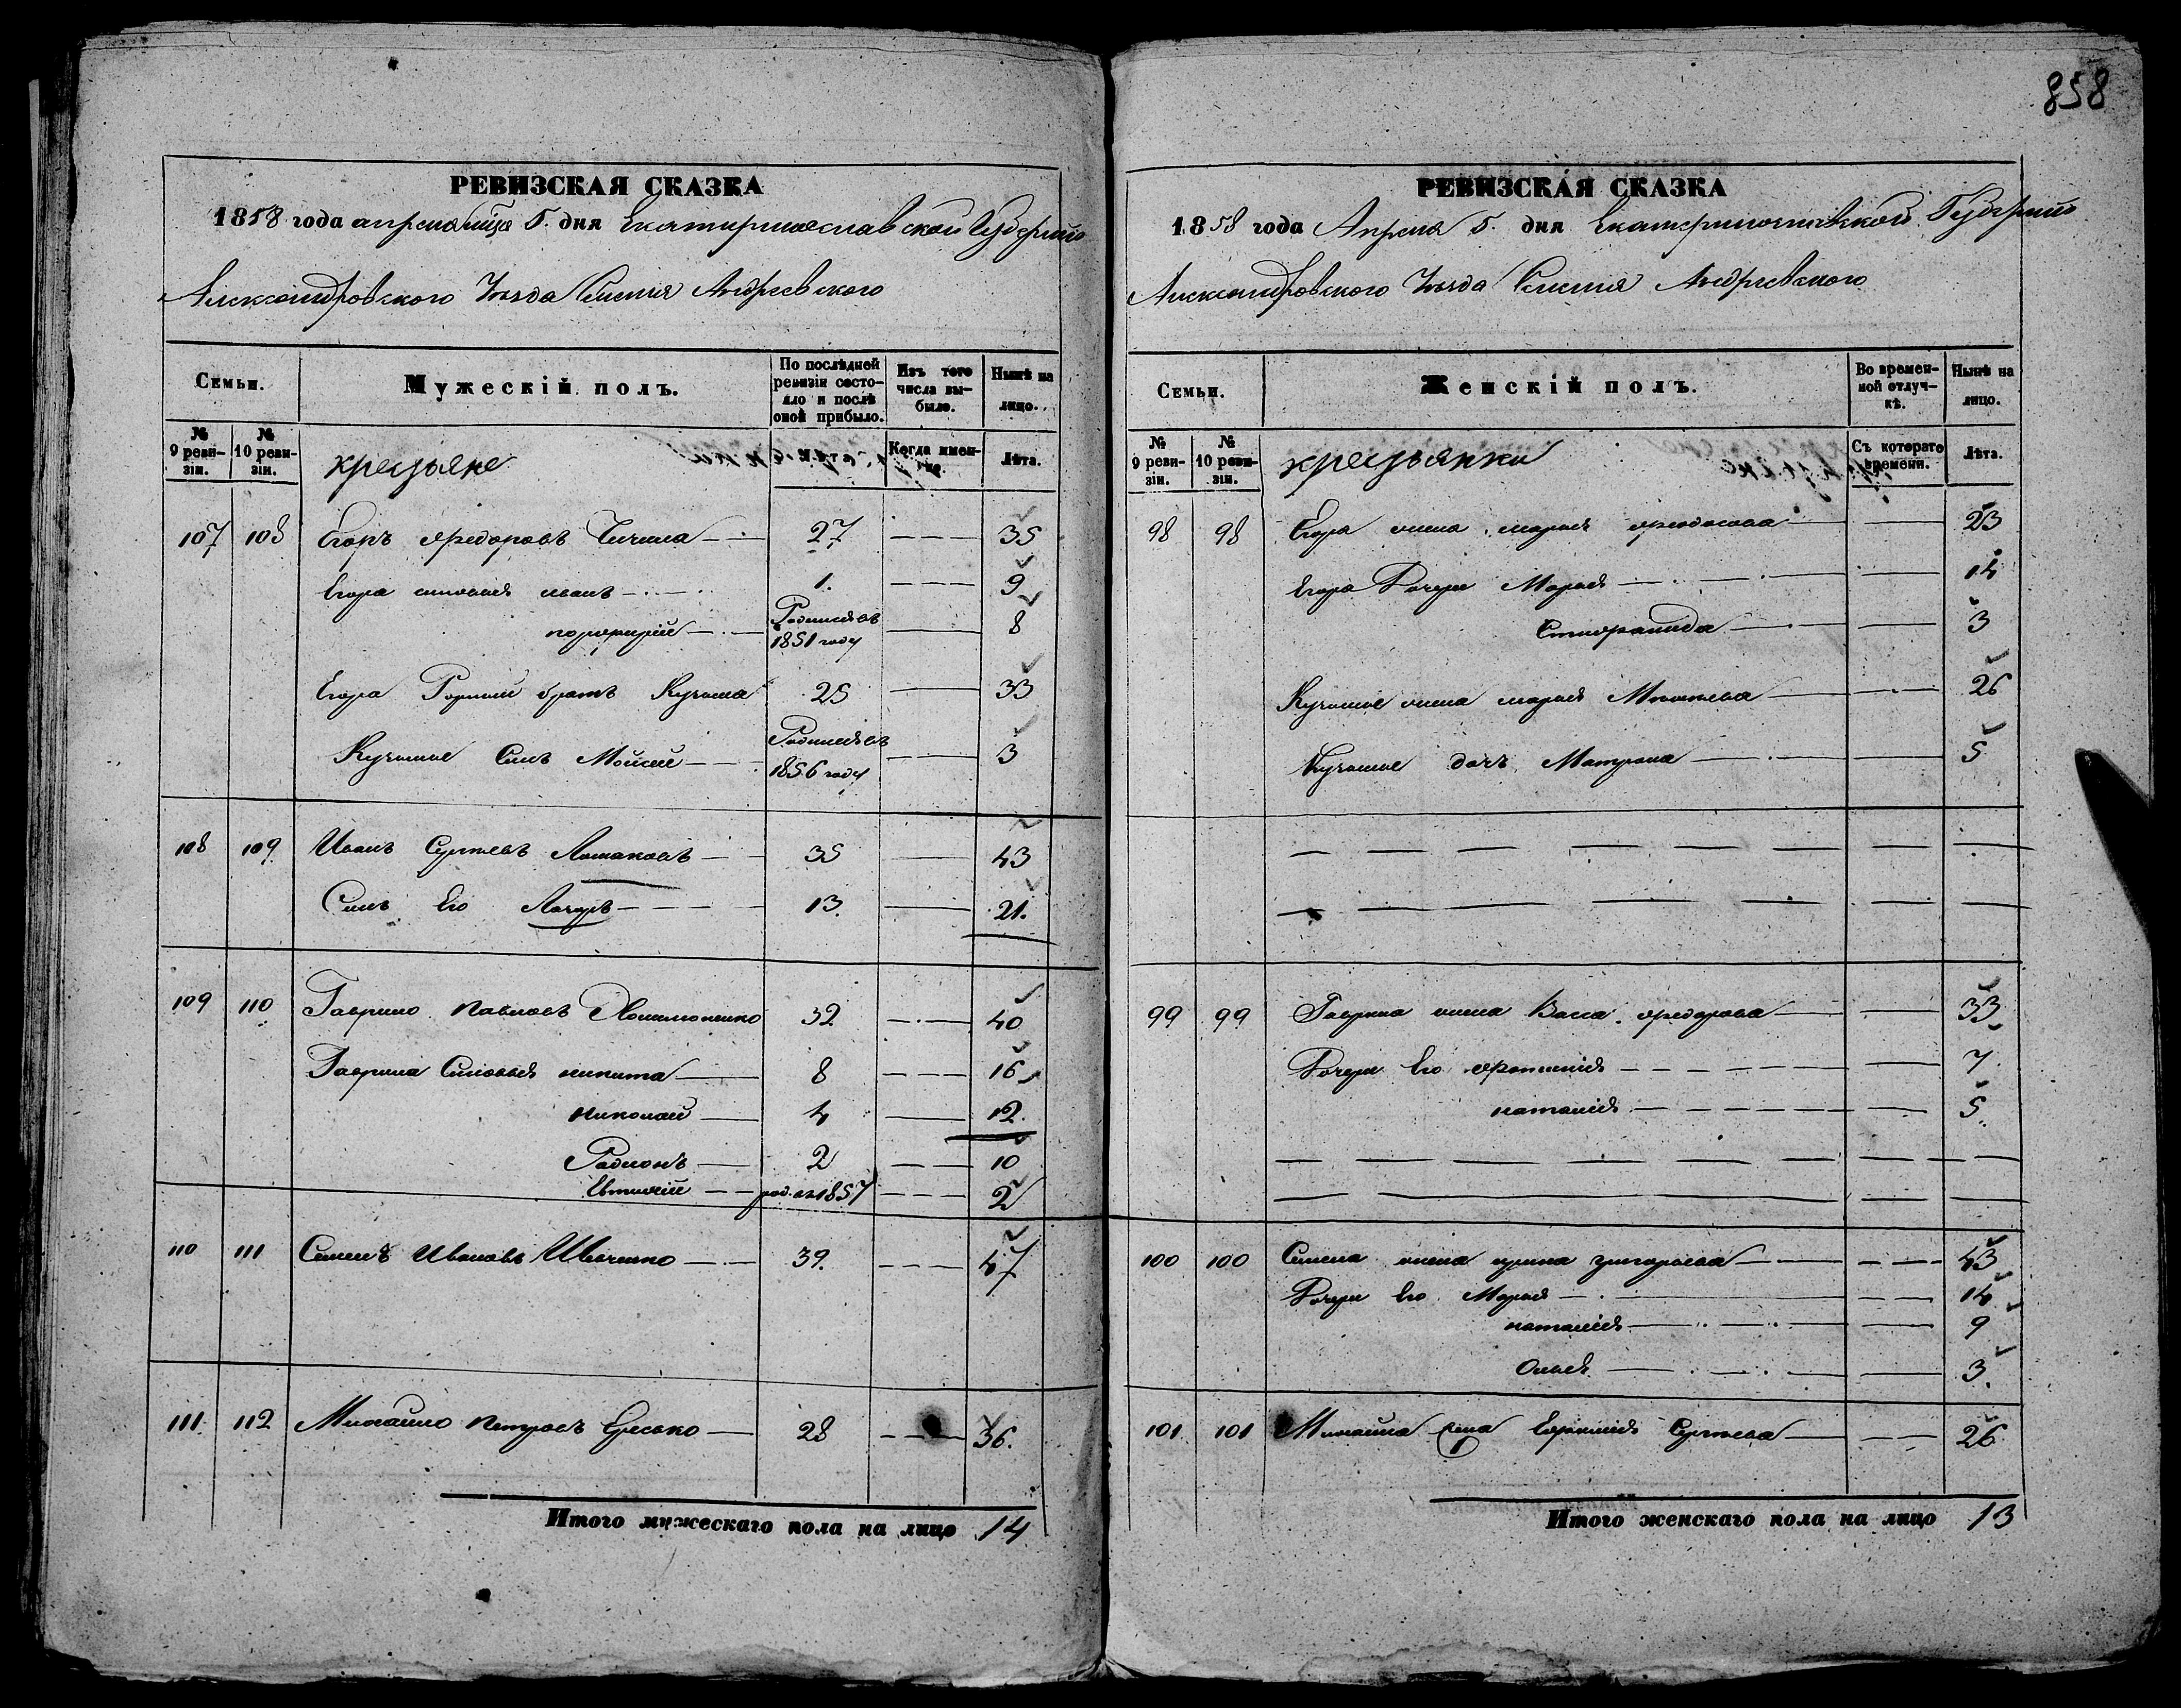 858
РЕВИЗСКАЯ СКАЗКА
1858 года апреля месяца 5. дня Екатеринославской Губернии
Александровского Уезда Селения Андреевского
Семьи.
Мужескій полъ.
По послѣдней ревизіи состояло и послѣ оной прибыло.
Изъ того числа выбыло.
Нынѣ на лицо.
№ 9 ревизіи.
№ 10 ревизіи.
крестьяне
Лѣта.
Когда именно.
Лѣта.
107 108 Егоръ Федоровъ 27 35
Егора сыновья иванъ 1. 9
порфирий Родился въ 1851 году 8
Егора Родный братъ Кузьма 25 33
Кузьмы Сынъ Мойсей Родился въ 1856 году 3
108 109 Иванъ Сергеевъ 35 43
Сынъ Его 13. 21.
109 110 Гаврило Павловъ 32 40
Гаврила Сыновья никита 8 16
николай 4 12
Радионъ 2 10
Евтихий род. въ 1857 2
110 111 Семенъ Ивановъ Ивченко 39. 47
111. 112 Михайло Петровъ Ересько 28 36.
Итого мужескаго пола на лицо 14
РЕВИЗСКАЯ СКАЗКА
1858 года Апреля 5. дня Екатеринославской Губернии
Александровского Уезда Селения Андреевского
Семьи.
Женскій полъ.
Во временной отлучкѣ.
Нынѣ на лицо.
№ 9 ревизіи.
№ 10 ревизіи.
крестьянки
Съ котораго времени.
Лѣта.
98 98 Егора жена марья феодосова 23
Егора Дочери Марья 14
Степанида 3
Кузьмы жена марья 26
Кузьмы дочь Матрона 5
99 99 Гаврила жена Васса федорова 33
Дочери Его 7
наталия 5.
100 100 Семена жена ирина григорьева 43
Дочери Его Марья 14
наталия 9
3.
101 101 Михайла жена Евгения Сергеева 26
Итого женскаго пола на лицо 13